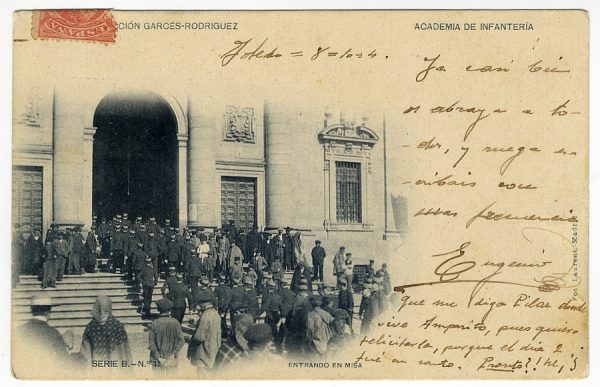 ESPAÑA
CCIÓN GARCÉS-RODRIGUEZ
ACADEMIA DE INFANTERÍA
Toledo = 8 = 10 = 4.
Ya casi bien
os abraza a to-
dos, y ruega es-
cribais con
mas frecuencia
Eugenio
que me diga Pilar donde
vive Amparito, pues quiero
felicitarla, porque el dia 2
fué su santo.
Fot. Laurent, Madrid
SERIE B.-N.º 11
ENTRANDO EN MISA